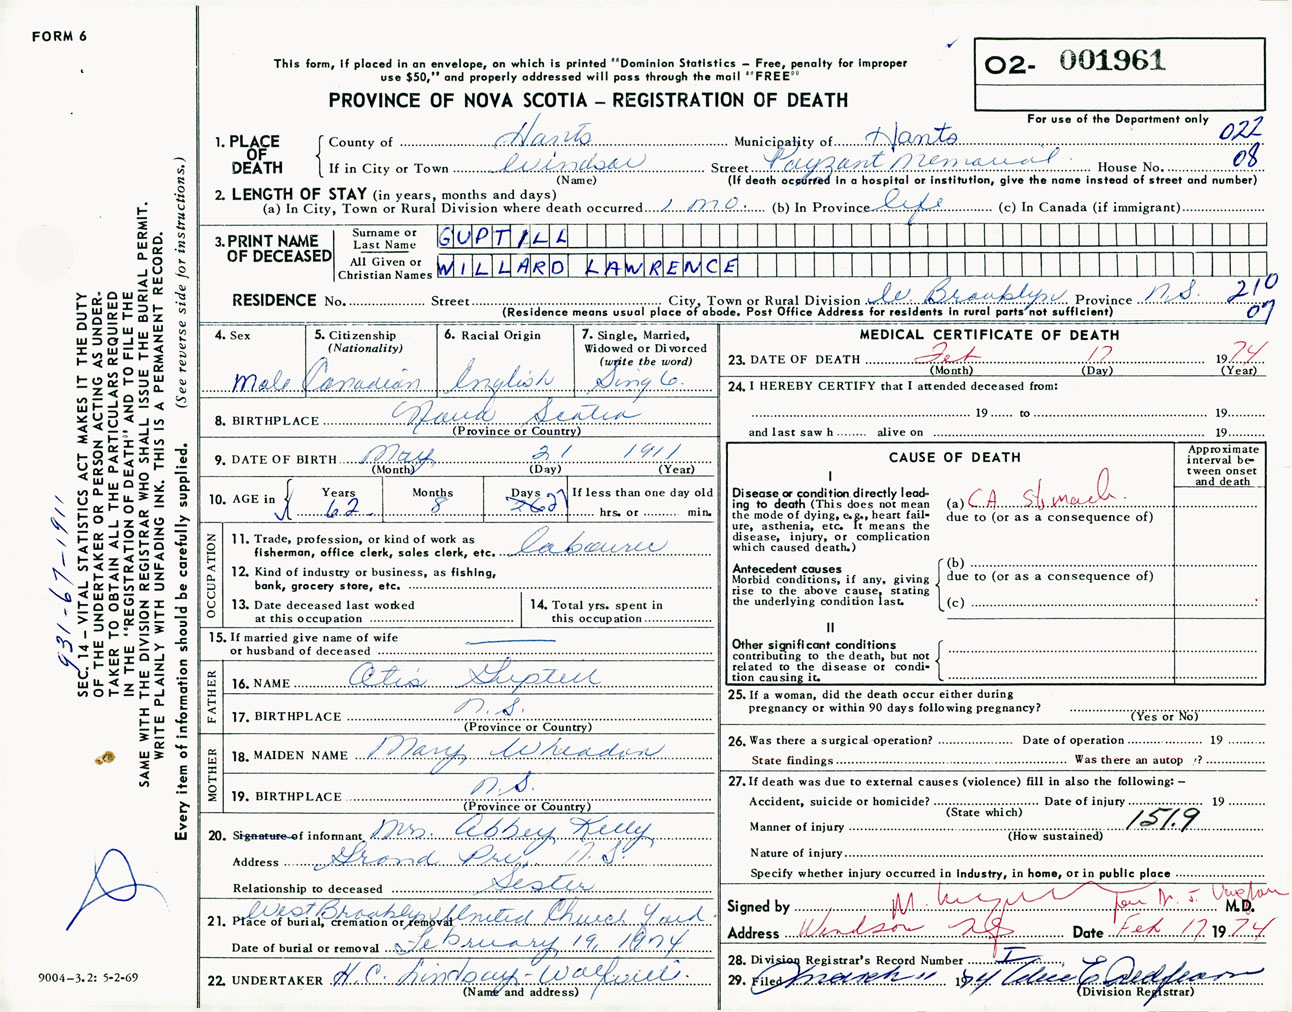 FORM 6
This form, if placed in an envelope, on which is printed "Dominion Statistics – Free, penalty for improper
use $50," and properly addressed will pass through the mail "FREE"
PROVINCE OF NOVA SCOTIA – REGISTRATION OF DEATH
O2- 001961
For use of the Department only
022
08
1. PLACE OF DEATH
County of Hants Municipality of Hants
If in City or Town Windsor Street Payzant Memorial House No.
(Name) (If death occurred in a hospital or institution, give the name instead of street and number)
2. LENGTH OF STAY (in years, months and days)
(a) In City, Town or Rural Division where death occurred 1 mo. (b) In Province life (c) In Canada (if immigrant)
3. PRINT NAME OF DECEASED
Surname or Last Name GUPTILL
All Given or Christian Names WILLARD LAWRENCE
RESIDENCE No. Street City, Town or Rural Division W Brooklyn Province N.S. 210
(Residence means usual place of abode. Post Office Address for residents in rural parts not sufficient) 07
4. Sex
Male
5. Citizenship (Nationality)
Canadian
6. Racial Origin
English
7. Single, Married, Widowed or Divorced (write the word)
Single
8. BIRTHPLACE Nova Scotia
(Province or Country)
9. DATE OF BIRTH May 21 1911
(Month) (Day) (Year)
10. AGE in Years 62 Months 8 Days If less than one day old
hrs. or min.
OCCUPATION
11. Trade, profession, or kind of work as
fisherman, office clerk, sales clerk, etc. labourer
12. Kind of industry or business, as fishing,
bank, grocery store, etc.
13. Date deceased last worked
at this occupation
14. Total yrs. spent in
this occupation
15. If married give name of wife
or husband of deceased
FATHER
16. NAME Otis Guptill
17. BIRTHPLACE N.S.
(Province or Country)
MOTHER
18. MAIDEN NAME Mary Wheadon
19. BIRTHPLACE N.S.
(Province or Country)
20. Signature of informant Mrs. Abbey Kelly
Address Grand Pre, N.S.
Relationship to deceased Sister
21. Place of burial, cremation or removal West Brooklyn United Church Yard
Date of burial or removal February 19, 1974
22. UNDERTAKER H.C. Lindsay - Wolfville
(Name and address)
MEDICAL CERTIFICATE OF DEATH
23. DATE OF DEATH Feb 17 1974
(Month) (Day) (Year)
24. I HEREBY CERTIFY that I attended deceased from:
19 to 19
and last saw h alive on 19
CAUSE OF DEATH
Approximate interval between onset and death
I
Disease or condition directly leading to death (This does not mean the mode of dying, e.g., heart failure, asthenia, etc. It means the disease, injury, or complication which caused death.)
(a) CA stomach.
due to (or as a consequence of)
Antecedent causes
Morbid conditions, if any, giving rise to the above cause, stating the underlying condition last.
(b)
due to (or as a consequence of)
(c)
II
Other significant conditions
contributing to the death, but not related to the disease or condition causing it.
25. If a woman, did the death occur either during
pregnancy or within 90 days following pregnancy?
(Yes or No)
26. Was there a surgical operation? Date of operation 19
State findings Was there an autop ?
27. If death was due to external causes (violence) fill in also the following: –
Accident, suicide or homicide? Date of injury 19
(State which)
Manner of injury 151.9
(How sustained)
Nature of injury
Specify whether injury occurred in industry, in home, or in public place
Signed by for Dr. J. Vaughan M.D.
Address Windsor NS Date Feb 17 1974
28. Division Registrar's Record Number
29. Filed March 11 1974
(Division Registrar)
931-67-1911
SEC. 14 – VITAL STATISTICS ACT MAKES IT THE DUTY
OF THE UNDERTAKER OR PERSON ACTING AS UNDER-
TAKER TO OBTAIN ALL THE PARTICULARS REQUIRED
IN THE "REGISTRATION OF DEATH" AND TO FILE THE
SAME WITH THE DIVISION REGISTRAR WHO SHALL ISSUE THE BURIAL PERMIT.
WRITE PLAINLY WITH UNFADING INK. THIS IS A PERMANENT RECORD.
Every item of information should be carefully supplied. (See reverse side for instructions.)
9004–3.2: 5-2-69